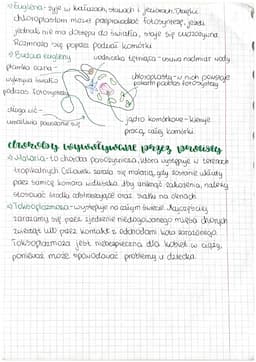 Euglena - żyje w kałużach, stawach i jeziorach. Dzięki
chloroplastom może przeprowadzać fotosyntezę, jeżeli
jednak nie ma dostępu do światła, staje się cudzożywna.
Rozmnaża się poprzez podział komórki
Budowa eugleny
wodniczka tętniąca - usuwa nadmiar wody
plamka oczna -
wykrywa światło
podczas fotosyntezy
chloroplasty - w nich powstaje
pokarm podczas fotosyntezy
długa wić -
umożliwia poruszanie się
jądro komórkowe - kieruje
pracą całej komórki
choroby wywoływane przez protisty
Malaria - to choroba pasożytnicza, która występuje w terenach
tropikalnych. Człowiek zaraża się malarią, gdy zostanie ukłuty
przez samicę komara widliszka. Aby uniknąć zakażenia, należy
stosować środki odstraszające oraz siatki na oknach
Toksoplazmoza - występuje na całym świecie. Najczęściej
zarażamy się przez zjedzenie niedogotowanego mięsa chorych
zwierząt lub przez kontakt z odchodami kota zarażonego.
Toksoplazmoza jest niebezpieczna dla kobiet w ciąży,
ponieważ może spowodować problemy u dziecka.